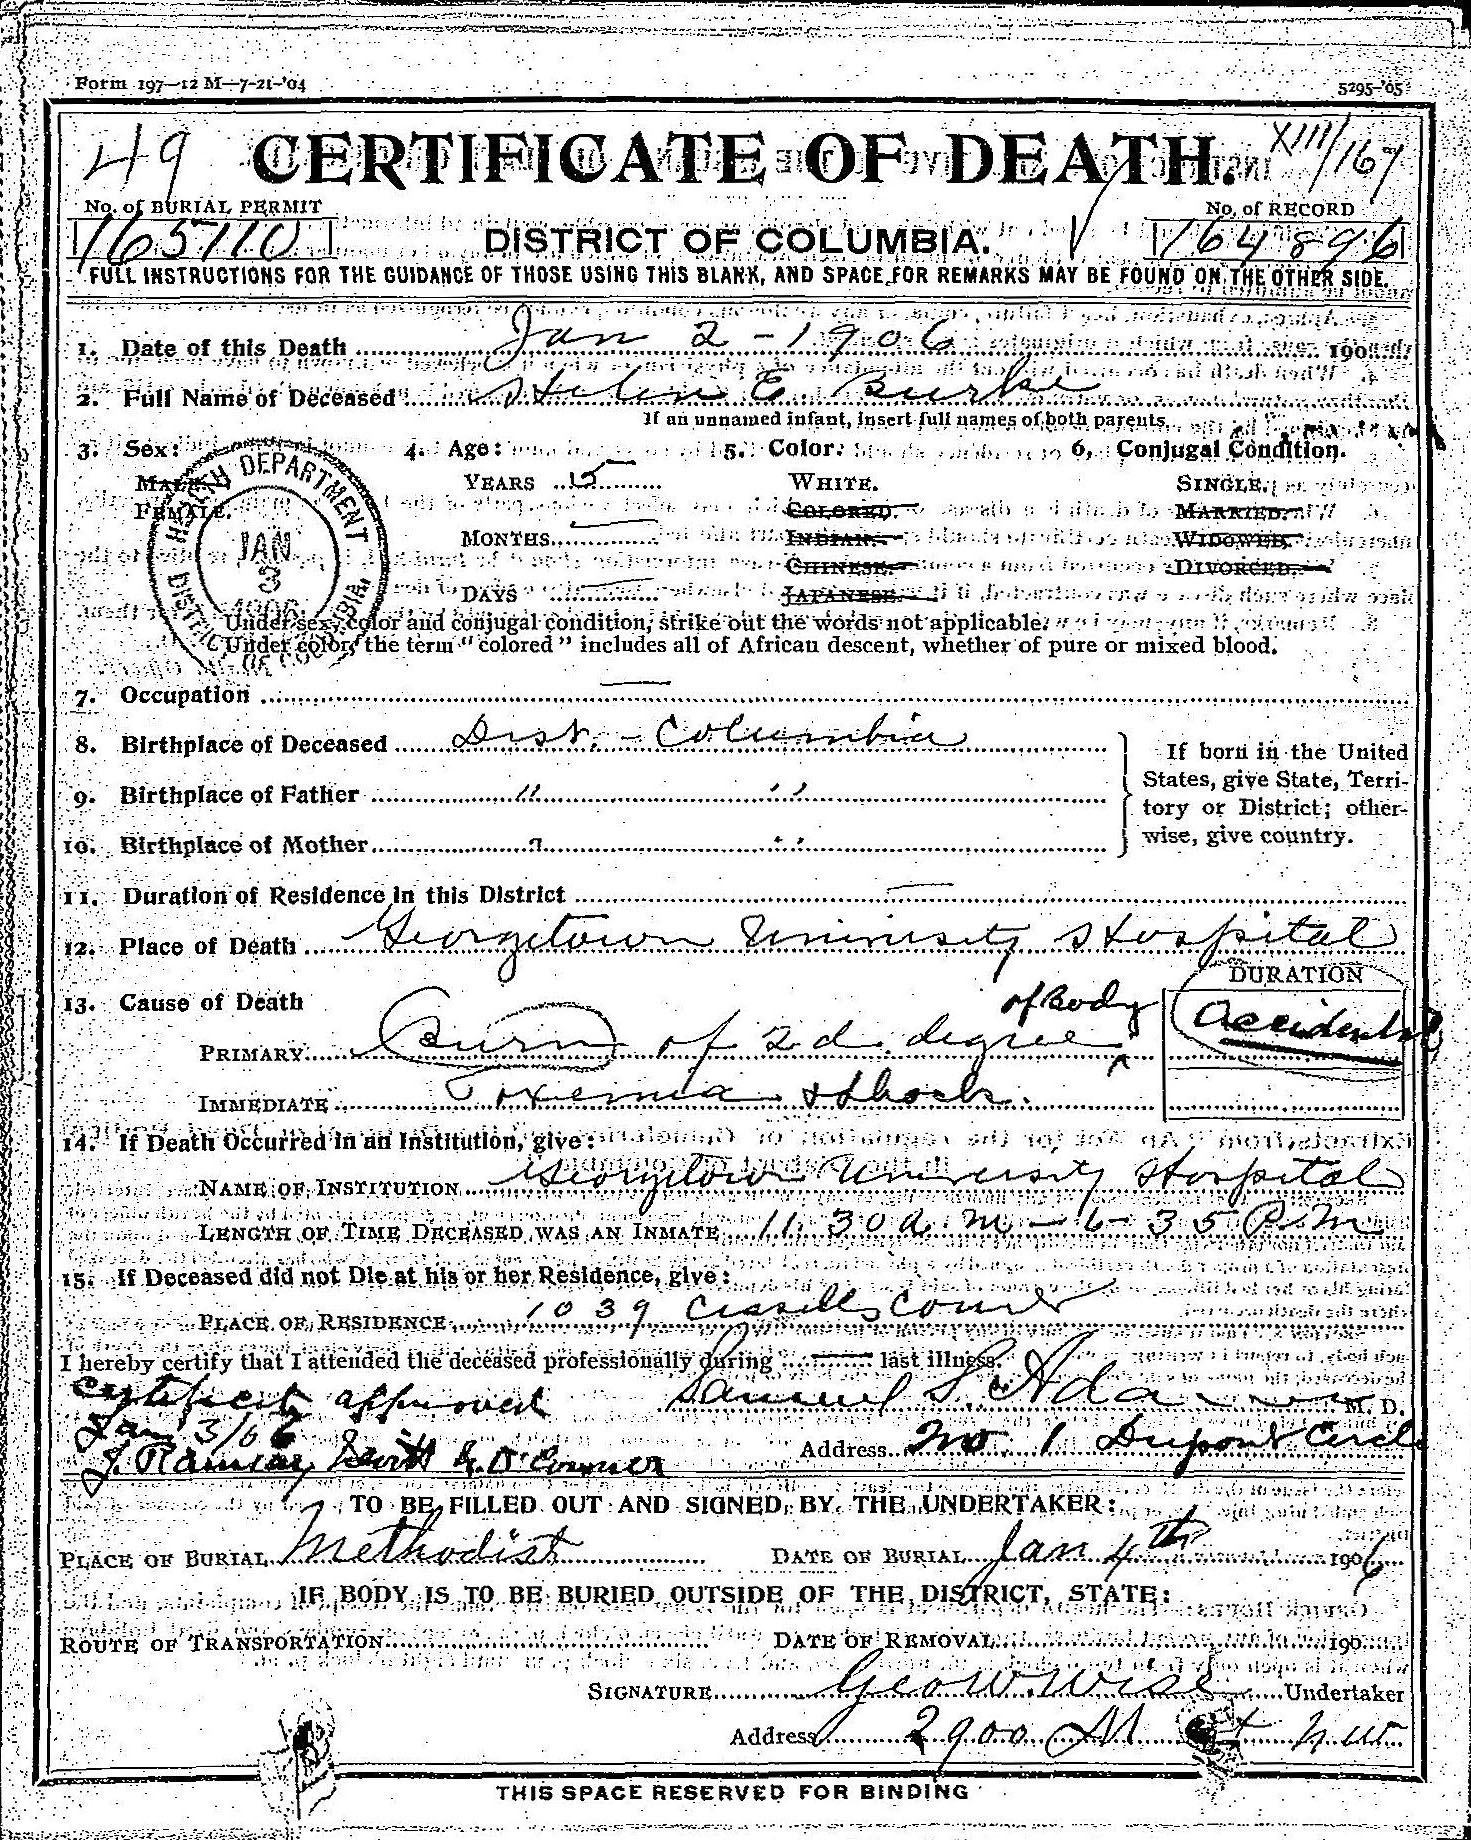 Form 197—12 M—7-21-'04
5295-'05
49
CERTIFICATE OF DEATH.
XIII/167
No. of BURIAL PERMIT
No. of RECORD
165110
DISTRICT OF COLUMBIA.
164896
FULL INSTRUCTIONS FOR THE GUIDANCE OF THOSE USING THIS BLANK, AND SPACE FOR REMARKS MAY BE FOUND ON THE OTHER SIDE.
1. Date of this Death Jan 2 - 1906 190
2. Full Name of Deceased Helen E. Burke
If an unnamed infant, insert full names of both parents.
3. Sex: 4. Age: 5. Color: 6. Conjugal Condition.
MALE. YEARS 15 WHITE. SINGLE.
FEMALE. COLORED. MARRIED.
MONTHS INDIAN. WIDOWED.
CHINESE. DIVORCED.
DAYS JAPANESE.
HEALTH DEPARTMENT
JAN
3
1906
DISTRICT OF COLUMBIA
Under sex, color and conjugal condition, strike out the words not applicable.
Under color, the term "colored" includes all of African descent, whether of pure or mixed blood.
7. Occupation —
8. Birthplace of Deceased Dist. - Columbia
9. Birthplace of Father " "
10. Birthplace of Mother " "
If born in the United
States, give State, Terri-
tory or District; other-
wise, give country.
11. Duration of Residence in this District —
12. Place of Death Georgetown University Hospital
DURATION
13. Cause of Death
of Body
Accidental
PRIMARY Burn of 2d. degree ^
IMMEDIATE Toxemia & Shock.
14. If Death Occurred in an Institution, give:
NAME OF INSTITUTION Georgetown University Hospital
LENGTH OF TIME DECEASED WAS AN INMATE 11.30 a.m - 6-35 P.M
15. If Deceased did not Die at his or her Residence, give:
PLACE OF RESIDENCE 1039 Cissells Court
I hereby certify that I attended the deceased professionally during — last illness.
Samuel S. Adams M. D.
Certificate approved
Jan 3/06
J. Ramsay Nevitt
Address No 1 Dupont Circle
TO BE FILLED OUT AND SIGNED BY THE UNDERTAKER:
PLACE OF BURIAL Methodist DATE OF BURIAL Jan 4th 1906
IF BODY IS TO BE BURIED OUTSIDE OF THE DISTRICT, STATE:
ROUTE OF TRANSPORTATION DATE OF REMOVAL 190
SIGNATURE Geo W. Wise Undertaker
Address 2900 M st n.w.
THIS SPACE RESERVED FOR BINDING